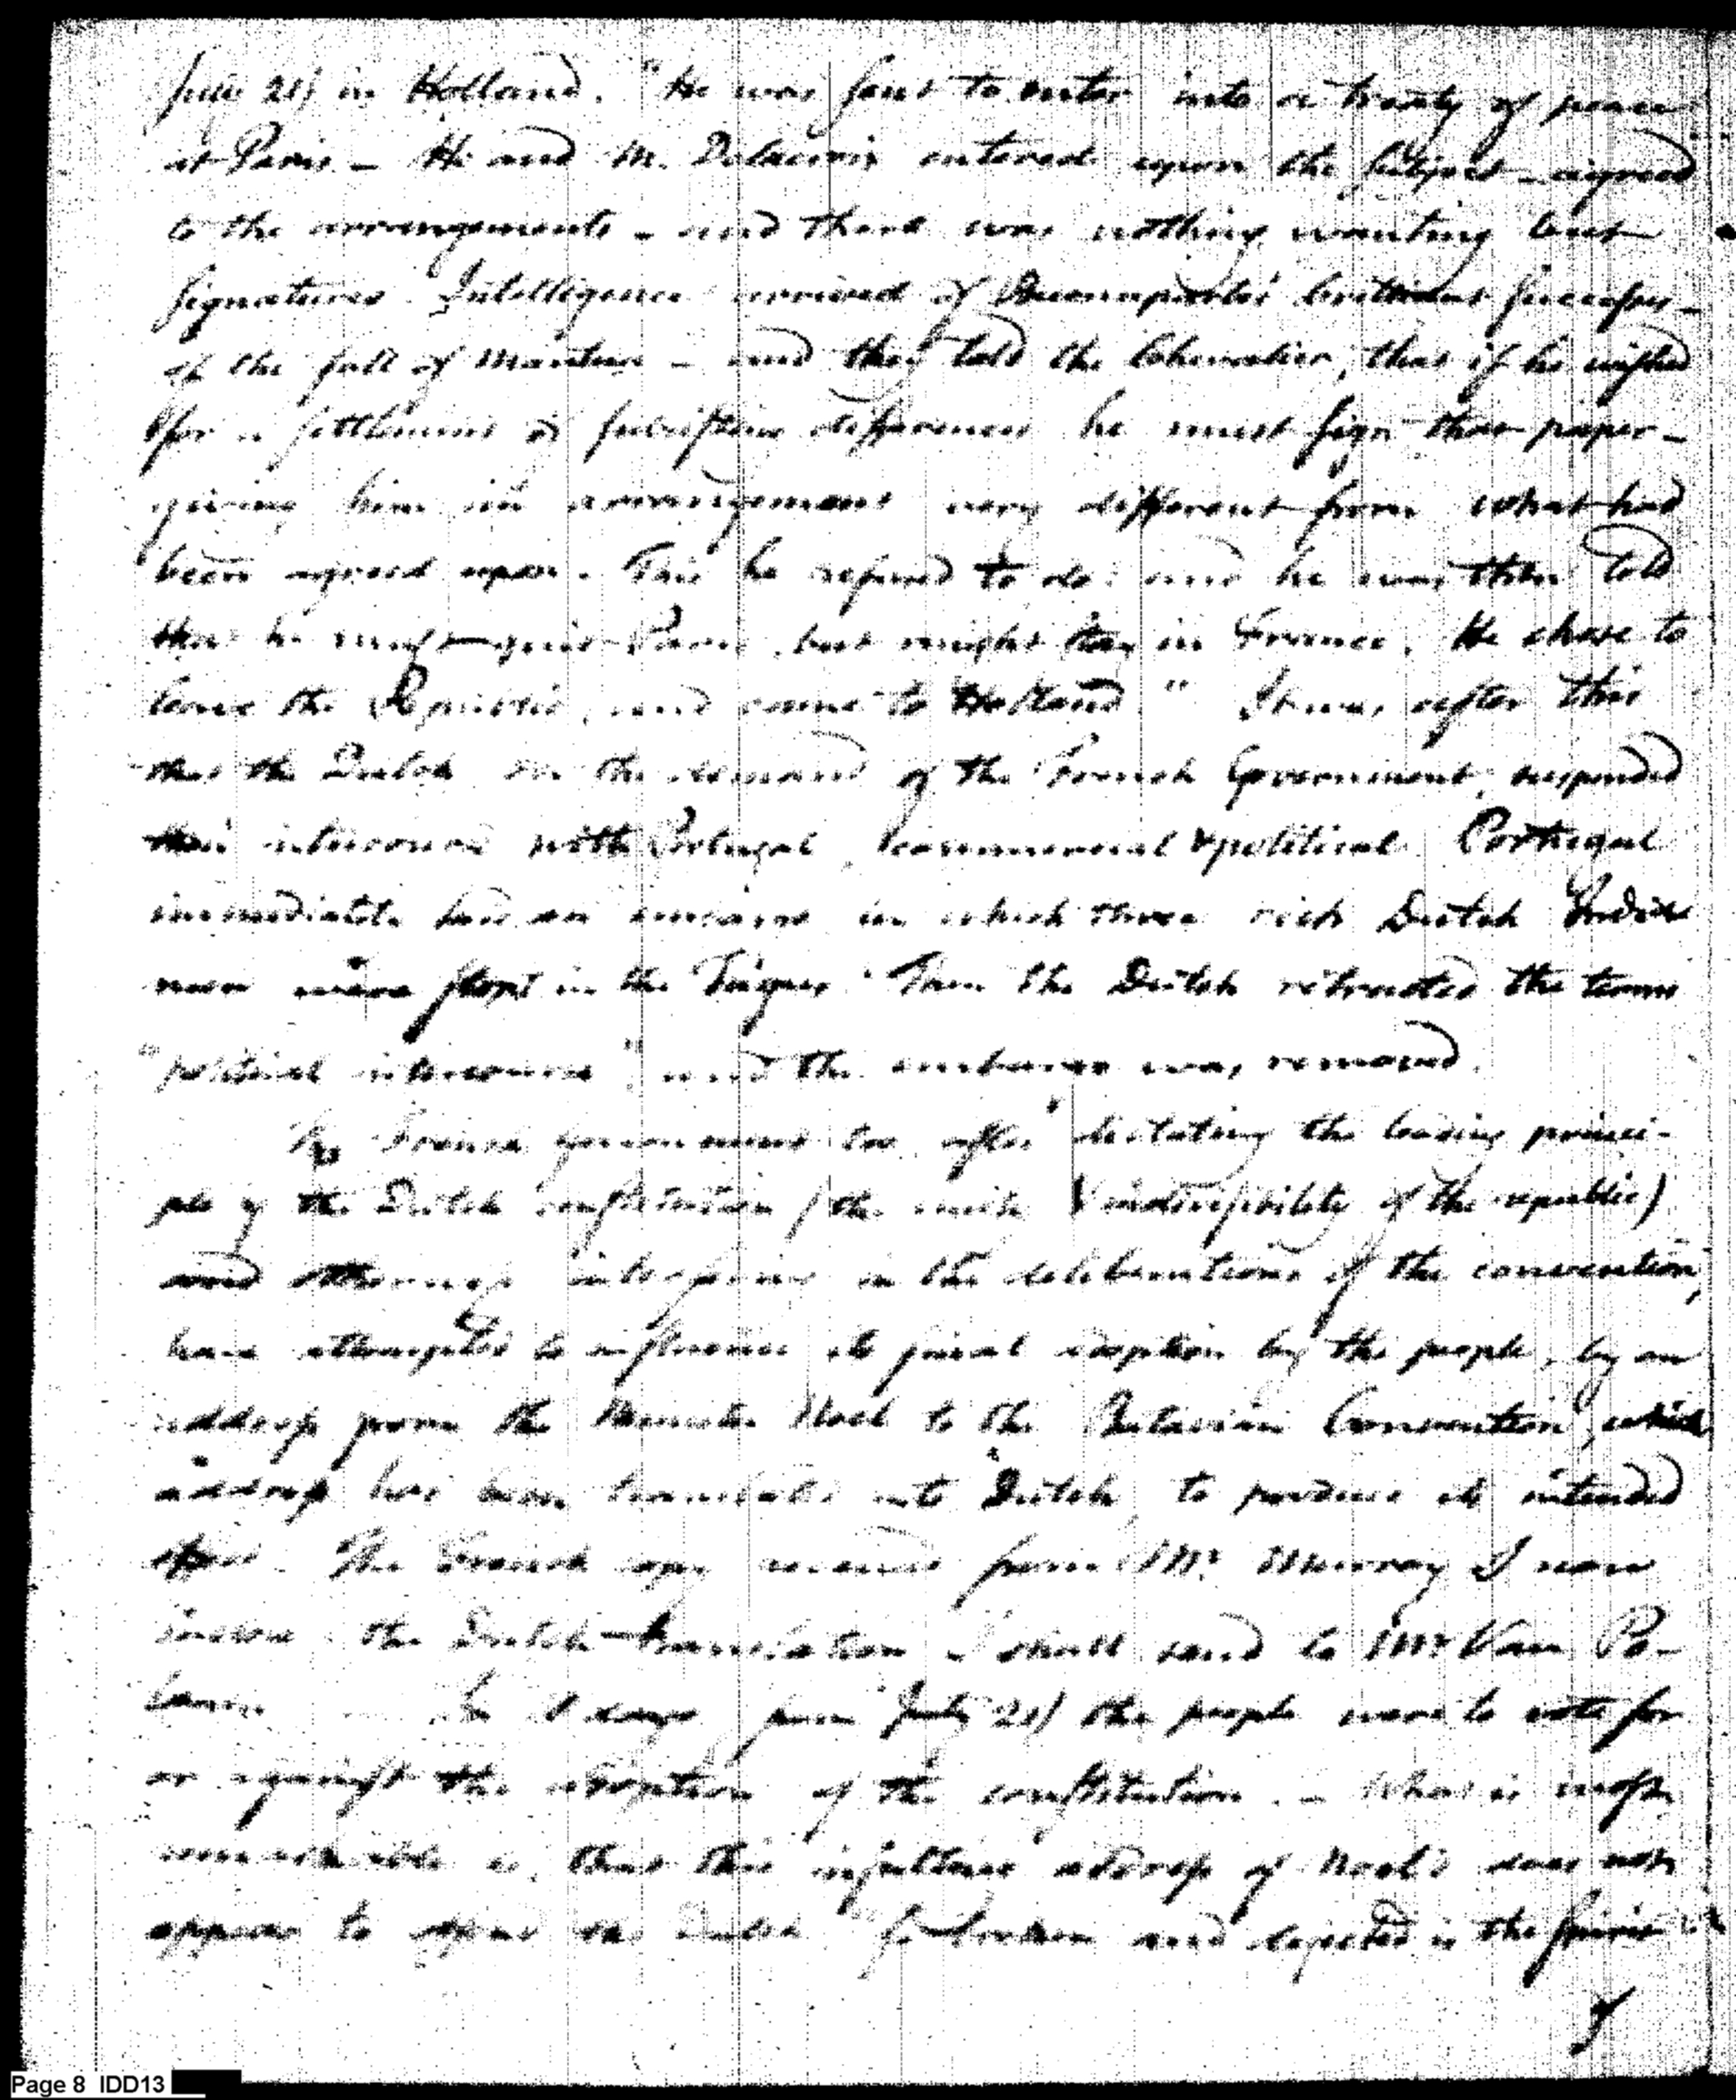 July 21) in Holland. "He was sent to enter into a treaty of peace
at Paris - He and M. Delacroix entered upon the subject - agreed
to the arrangements - and there was nothing wanting but
signatures. Intelligence arrived of Buonaparte's brilliant successes -
of the fall of Mantua - and they told the Chevalier, that if he wished
for a settlement of subsisting differences he must sign that paper -
giving him an arrangement very different from what had
been agreed upon. This he refused to do: and he was then told
that he must quit Paris, but might stay in France. He chose to
leave the Republic, and came to Holland." It was after this
that the Dutch on the demand of the French Government, suspended
their intercourse with Portugal, commercial & political. Portugal
immediately laid an embargo in which three rich Dutch India
men were stopt in the Tagus. Then the Dutch retracted the terms
"political intercourse", and the embargo was removed.
The French government too, after dictating the leading princi-
ple of the Dutch constitution (the unity & indivisibility of the republic)
and otherwise interfering in the deliberations of the convention,
have attempted to influence its final adoption by the people, by an
address from the Minister Noel to the Batavian Convention, which
address has been translated into Dutch, to produce its intended
effect. The French copy received from Mr. Murray I now
inclose: the Dutch translation I shall send to Mr Van Po-
lanen. In 8 days from July 21) the people were to vote for
or against the adoption of the constitution. - What is most
remarkable is, that this insulting address of Noel's does not
appear to offend the Dutch. So broken and dejected is the spirit
of
Page 8 IDD13